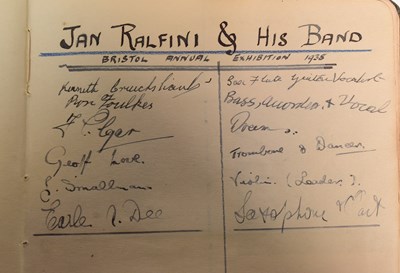 JAN RALFINI & HIS BAND
BRISTOL ANNUAL EXHIBITION 1935
Kenneth Cruickshank Sax Flute Guitar Vocalist
Ron Foulkes Bass, Accordion, & Vocal
Drums.
Geoff Love. Trombone & Dancer
E. Smallman Violin (Leader).
Earle Dee Saxophone